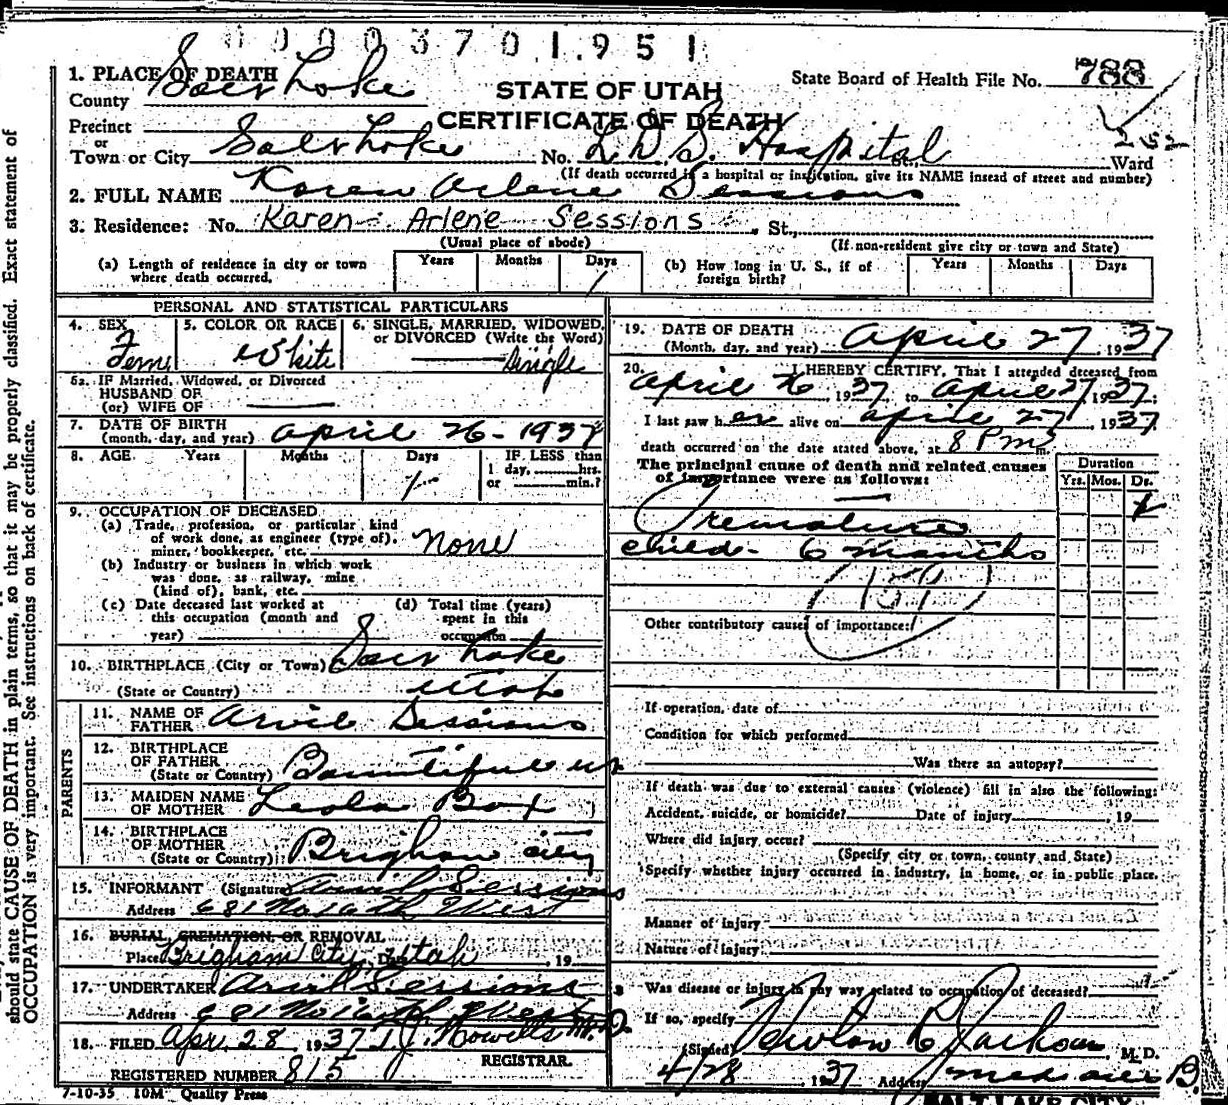 0000370 1951
1. PLACE OF DEATH Salt Lake
County
State Board of Health File No. 788
STATE OF UTAH
CERTIFICATE OF DEATH
252
Precinct
or
Town or City Salt Lake No. L.D.S. Hospital St., Ward
(If death occurred in a hospital or institution, give its NAME insead of street and number)
2. FULL NAME Karen Arlene Sessions
3. Residence: No. Karen Arlene Sessions St.,
(Usual place of abode) (If non-resident give city or town and State)
(a) Length of residence in city or town where death occurred. Years Months Days 1
(b) How long in U. S., if of foreign birth? Years Months Days
PERSONAL AND STATISTICAL PARTICULARS
4. SEX 2 Fem
5. COLOR OR RACE White
6. SINGLE, MARRIED, WIDOWED, or DIVORCED (Write the Word) Single
6a. IF Married, Widowed, or Divorced
HUSBAND OF
(or) WIFE OF
7. DATE OF BIRTH
(month, day, and year) April 26-1937
8. AGE Years Months Days 1 IF LESS than
1 day, hrs.
or min.?
9. OCCUPATION OF DECEASED
(a) Trade, profession, or particular kind
of work done, as engineer (type of),
miner, bookkeeper, etc. none
(b) Industry or business in which work
was done, as railway, mine
(kind of), bank, etc.
(c) Date deceased last worked at
this occupation (month and
year)
(d) Total time (years)
spent in this
occupation
10. BIRTHPLACE (City or Town) Salt Lake
(State or Country) Utah
PARENTS
11. NAME OF
FATHER Arvil Sessions
12. BIRTHPLACE
OF FATHER
(State or Country) Bountiful Ut
13. MAIDEN NAME
OF MOTHER Leola Box
14. BIRTHPLACE
OF MOTHER
(State or Country) Brigham City
15. INFORMANT (Signature) Arvil Sessions
Address 681 No 16th West
16. BURIAL, CREMATION, OR REMOVAL
Place Brigham City, Utah Date , 19
17. UNDERTAKER Arvil Sessions
Address 681 No 16th West
18. FILED Apr. 28, 1937 Howells M.D.
REGISTRAR.
REGISTERED NUMBER 815
7-10-35 10M Quality Press
19. DATE OF DEATH
(Month, day, and year) April 27, 1937
20. I HEREBY CERTIFY, That I attended deceased from
April 26, 1937, to April 27, 1937;
I last saw h er alive on April 27 1937
death occurred on the date stated above, at 8 Pm m.
The principal cause of death and related causes
of importance were as follows:
Duration
Yrs. Mos. Ds.
1
Premature
child - 6 months
159
Other contributory causes of importance:
If operation, date of
Condition for which performed
Was there an autopsy?
If death was due to external causes (violence) fill in also the following:
Accident, suicide, or homicide? Date of injury , 19
Where did injury occur?
(Specify city or town, county and State)
Specify whether injury occurred in industry, in home, or in public place.
Manner of injury
Nature of injury
Was disease or injury in any way related to occupation of deceased?
If so, specify
(Signed) M. D.
4/28 1937 Address
SALT LAKE CITY
should state CAUSE OF DEATH in plain terms, so that it may be properly classified. Exact statement of
OCCUPATION is very important. See instructions on back of certificate.